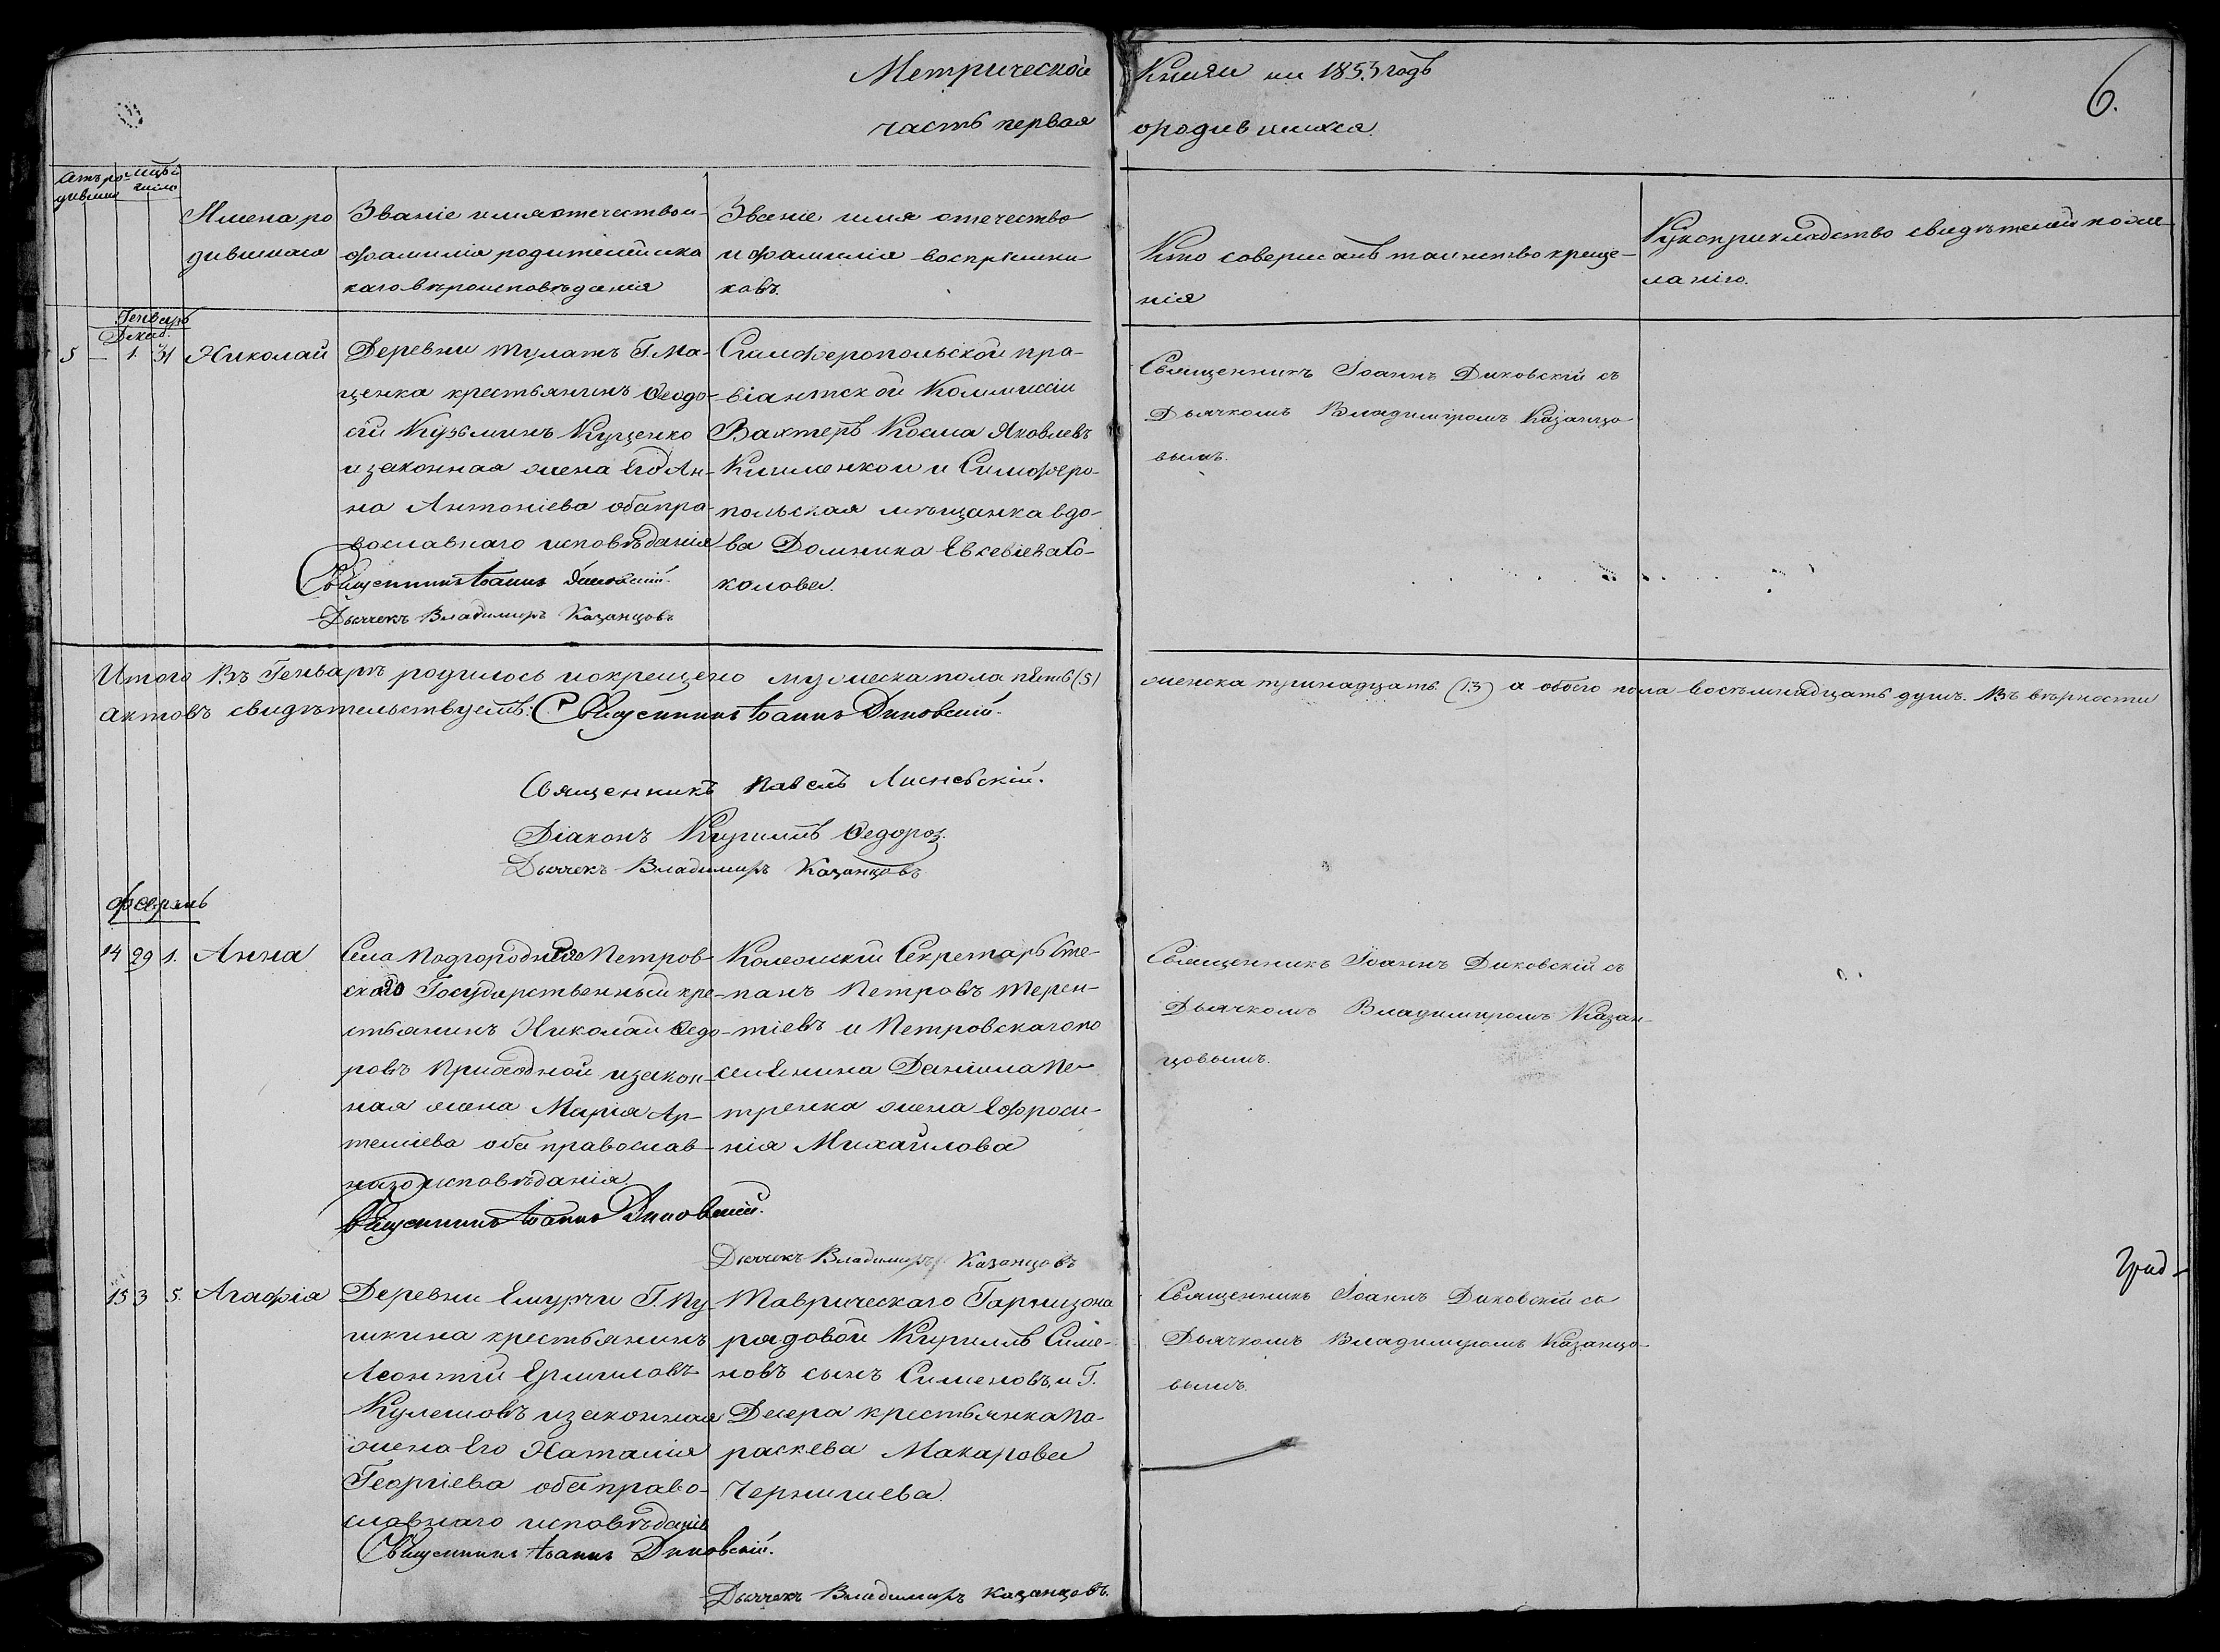 Метрической Книги на 1853 годъ
6.
часть первая о родившихся.
Счетъ родившихся
Мцъ и числа
Имена родившихся
Званіе имя отечество и
фамилія родителей и ка
каго вѣроисповѣданія
Званіе имя отечество
и фамилія воспріемни
ковъ.
Кто совершалъ таинство креще-
нія
Рукоприкладство свидѣтелей по же-
ланію.
Генварь
Декаб.
5 — 1. 31 Николай
Деревни Тулатъ Г. Ма-
ценка крестьянинъ Ѳеодо-
сій Кузьминъ Куценко
и законная жена Его Ан-
на Антоніева оба пра-
вославнаго исповѣданія
Священникъ Іоаннъ Диковскій.
Дьячекъ Владимиръ Казанцовъ
Симферопольской про-
віантской Коммиссіи
Вахтеръ Косма Яковлевъ
и Симферо-
польская мѣщанка вдо-
ва Домника Евсевіева Со-
колова.
Священникъ Іоаннъ Диковскій съ
Дьячкомъ Владиміромъ Казанцо-
вымъ.
Итого Въ Генварѣ родилось и окрещено мужеска пола пять (5) женска тринадцать (13) а обоего пола восѣмнадцать душъ. Въ вѣрности
актовъ свидѣтельствуемъ: Священникъ Іоаннъ Диковскій.
Священникъ Павелъ Лисневскій.
Діаконъ Кириллъ Ѳедоров.
Дьячекъ Владимиръ Казанцовъ
Февраль
14 29 1. Анна
Села Подгородне Петров-
скаго Государственный кре-
стьянинъ Николай Ѳедо-
ровъ Приходной и закон-
ная жена Марія Ар-
темiева оба православ-
наго исповѣданія
Священникъ Іоаннъ Диковскій.
Дьячекъ Владимиръ Казанцовъ
Колежскій Секретарь Сте-
панъ Петровъ Терен-
тіевъ и Петровскаго по
селянина Даніила Пе-
тренка жена Ефроси-
нія Михайлова
Священникъ Іоаннъ Диковскій съ
Дьячкомъ Владимиромъ Казан-
цовымъ.
15 3 5. Агафія
Деревни Емурчи Г. Пу-
шкина крестьянинъ
Леонтій Ермиловъ
Кулешовъ и законная
жена Его Наталія
Георгіева оба право-
славнаго исповѣданія
Священникъ Іоаннъ Диковскій.
Дьячекъ Владимиръ Казанцовъ.
Таврическаго Гарнизона
рядовой Кириллъ Симе-
новъ сынъ Сименовъ, и Г.
Десера крестьянка Па-
раскева Макарова
Чернишева.
Священникъ Іоаннъ Диковскій съ
Дьячкомъ Владиміромъ Казанцо-
вымъ.